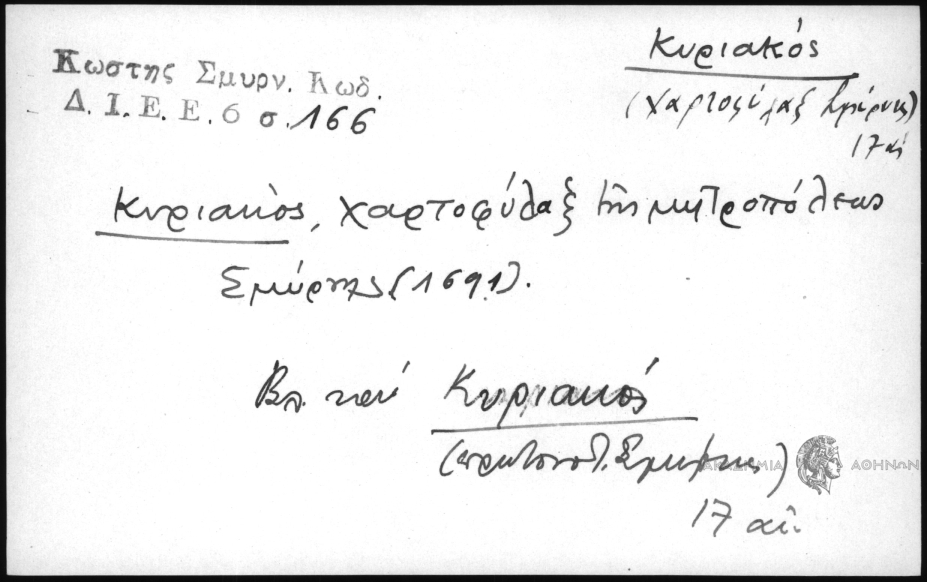 Κωστης Σμυρν. Κωδ.
Δ. Ι. Ε. Ε. 6 σ. 166
Κυριακός
(χαρτοφύλαξ Σμύρνης)
17 αἰ
Κυριακὸς, χαρτοφύλαξ τῆς μητροπόλεως
Σμύρνης (1691).
Βλ. καὶ Κυριακός
(πρωτονοτ. Σμύρνης)
17 αἰ.
ΑΚΑΔΗΜΙΑ ΑΘΗΝΩΝ